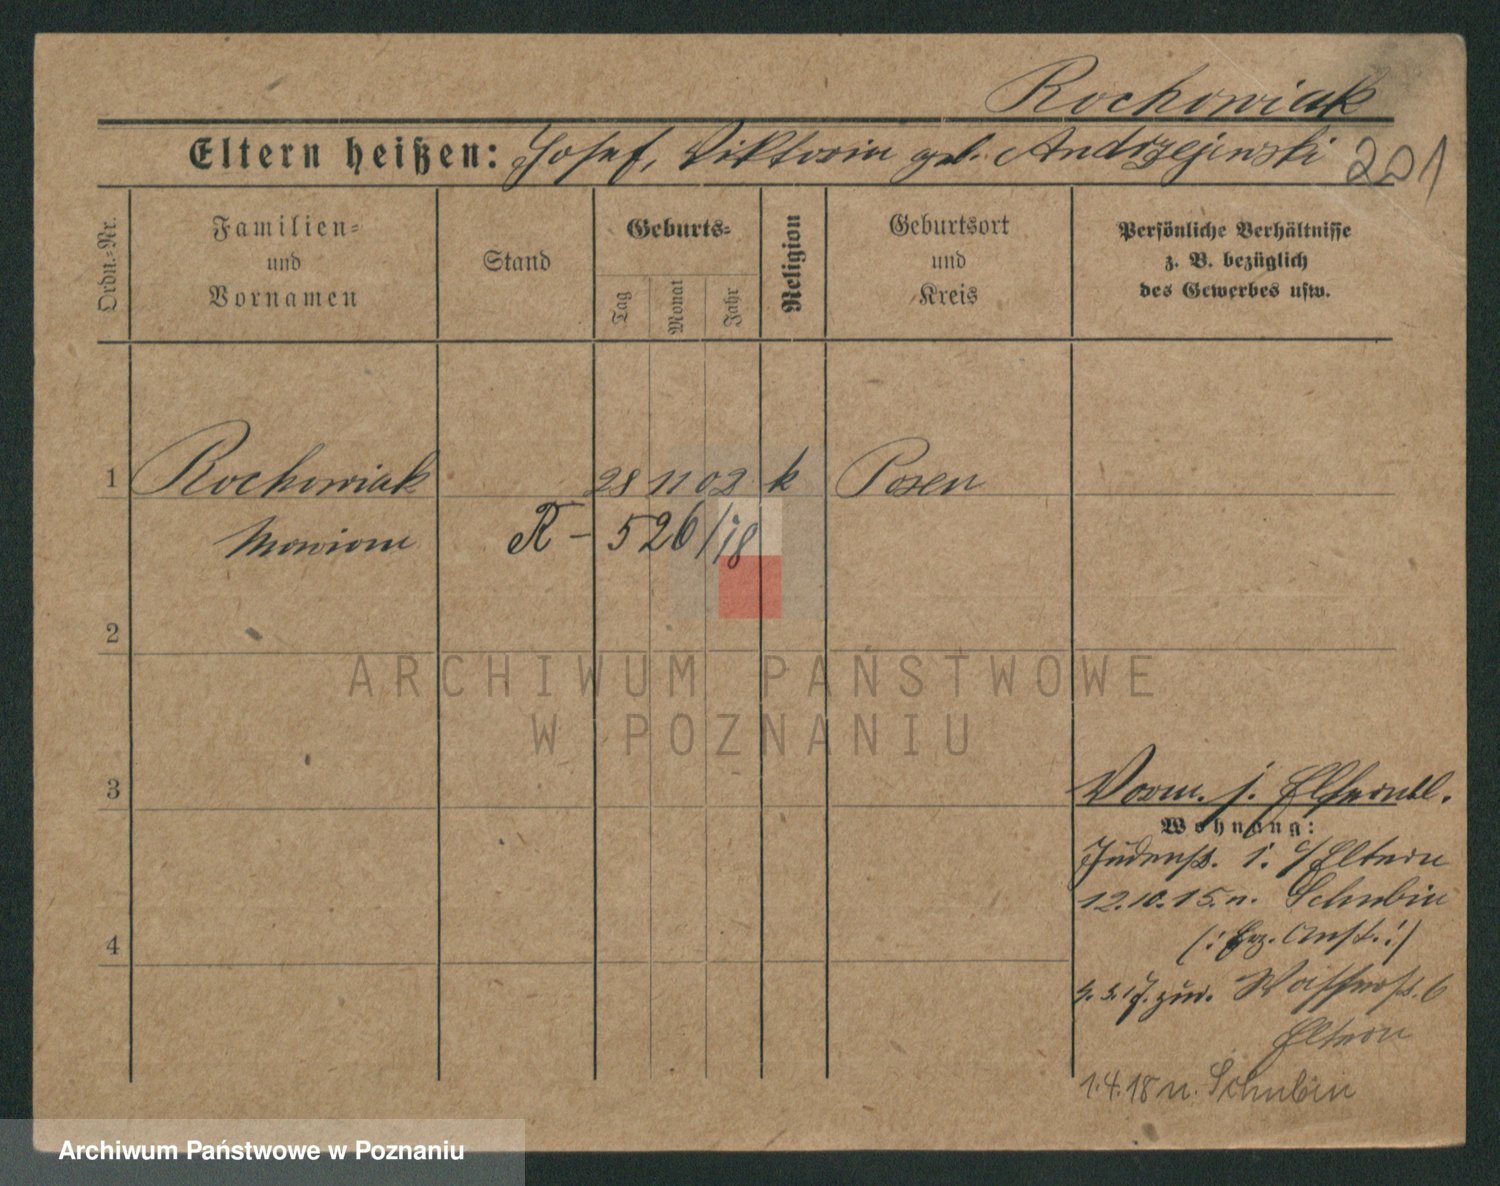 Rochowiak
Eltern heißen: Josef, Viktoria geb. Andrzejewski 201
Ordn.-Nr.
Familien-
und
Vornamen
Stand
Geburts-
Tag
Monat
Jahr
Religion
Geburtsort
und
Kreis
Persönliche Verhältnisse
z. B. bezüglich
des Gewerbes usw.
1 Rochowiak 28 11 02 k Posen
Maryan R - 526/18
2
ARCHIWUM PAŃSTWOWE
W POZNANIU
3
Vorm. s. Elternbl.
Wohnung:
Judenstr. 1. Eltern
12.10.15. n. Schubin
(: Erz. Anst. :)
4
3.17. zur. 6
Eltern
1.4.18 n. Schubin
Archiwum Państwowe w Poznaniu